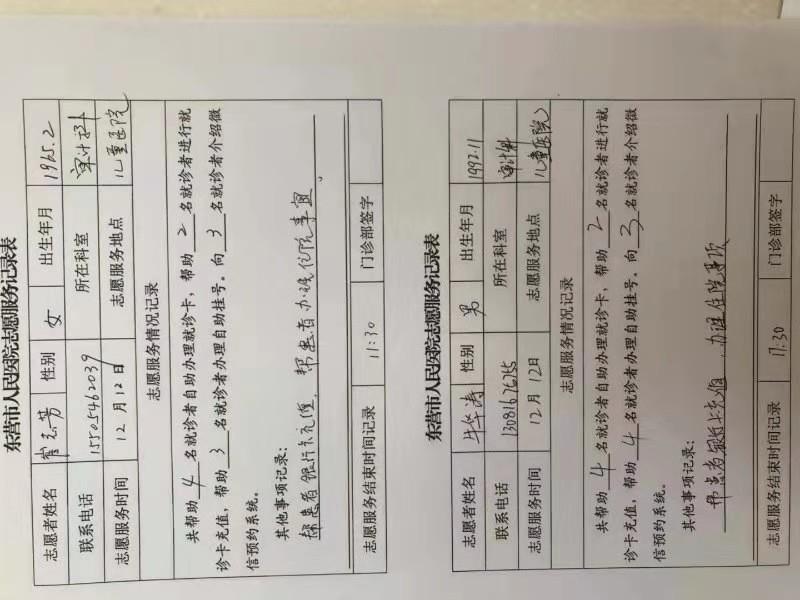 东营市人民医院志愿服务记录表
志愿者姓名 性别 女 出生年月 1965.2
联系电话 15505462039 所在科室 审计科
志愿服务时间 12月12日 志愿服务地点 儿童医院
志愿服务情况记录
共帮助 4 名就诊者自助办理就诊卡，帮助 2 名就诊者进行就
诊卡充值，帮助 3 名就诊者办理自助挂号。向 3 名就诊者介绍微
信预约系统。
其他事项记录：
帮患者银行卡充值，帮患者办理住院事宜。
志愿服务结束时间记录 11:30 门诊部签字
东营市人民医院志愿服务记录表
志愿者姓名 牛华涛 性别 男 出生年月 1992.11
联系电话 13081676255 所在科室 审计科
志愿服务时间 12月12日 志愿服务地点 儿童医院
志愿服务情况记录
共帮助 4 名就诊者自助办理就诊卡，帮助 2 名就诊者进行就
诊卡充值，帮助 4 名就诊者办理自助挂号。向 3 名就诊者介绍微
信预约系统。
其他事项记录：
帮患者银行卡充值，办理住院事项
志愿服务结束时间记录 17:30 门诊部签字